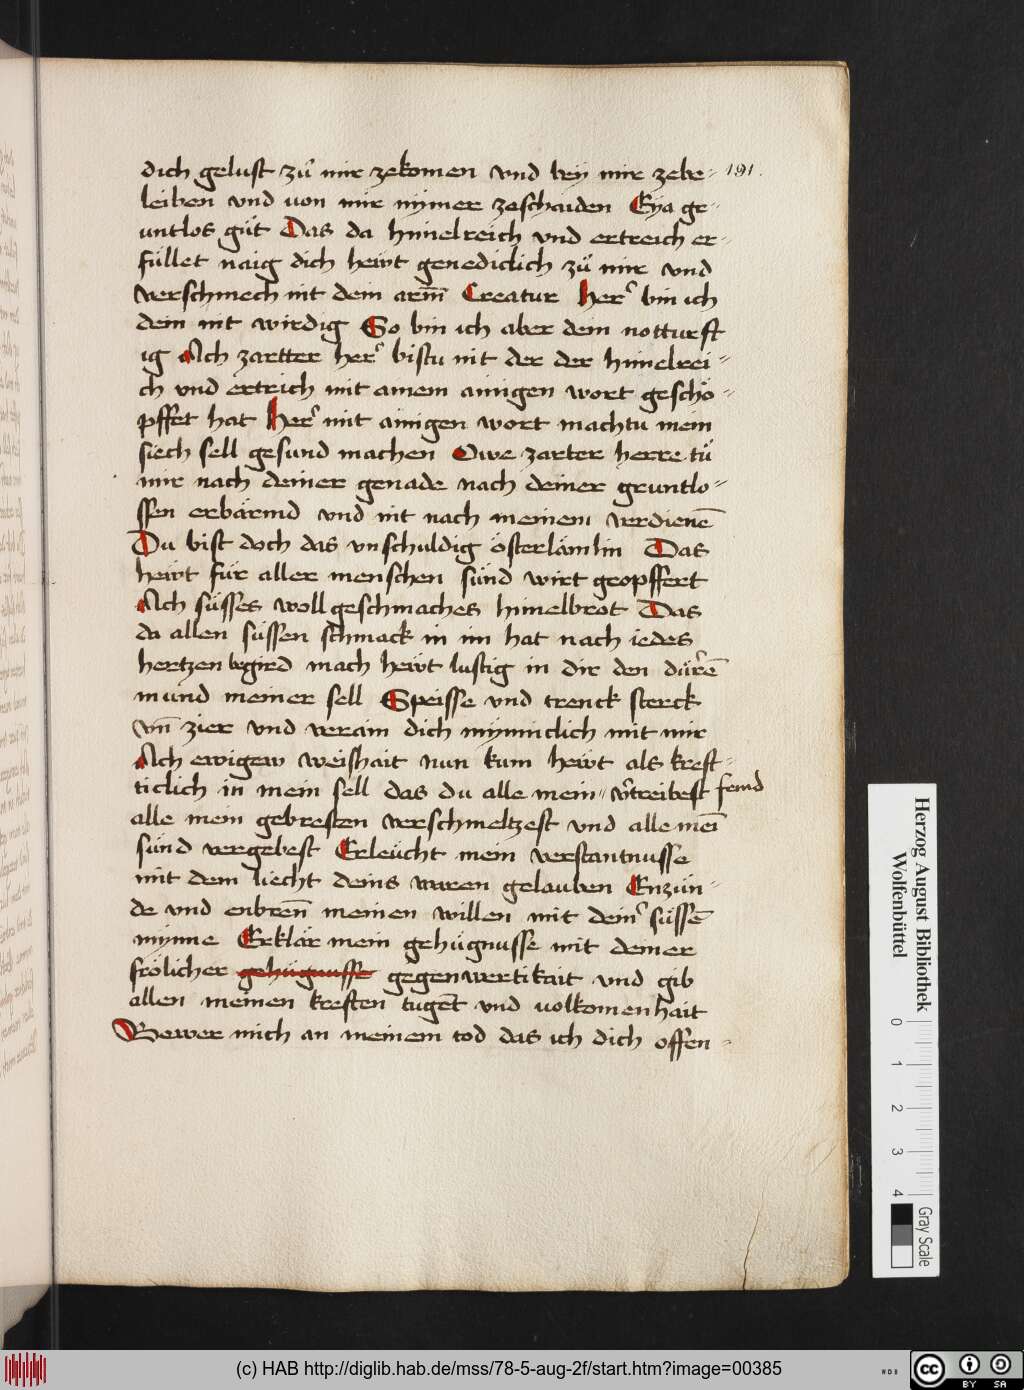 dich gelust zů mir zekomen vnd bey mir zebe= 191.
leiben vnd von mir nymer zeschaiden Eya ge=
untlos güt Das da himelreich vnd ertreich er=
füllet naig dich hewt genediclich zů mir vnd
verschmech nit dein arm̄ Creatur Her᷑ bin ich
dein nit wirdig So bin ich aber dein notturft
ig Ach zartter her᷑ bistu nit der der himelrei=
ch vnd ertrich mit ainem ainigen wort geschö=
pffet hat Her᷑ mit ainigen wort machtu mein
siech sell gesund machen Owe zarter herre tů
mir nach deiner genade nach deiner gruntlo=
ssen erbärmd vnd nit nach meinem verdienē
Du bist doch das vnschuldig österlämlin Das
hewt für aller menschen sünd wirt geopffert
Ach süsses woll geschmaches himelbrot Das
da allen süssen schmack in im hat nach iedes
hertzen begird mach hewt lustig in dir den dürrē
mund meiner sell Speisse vnd trenck sterck
vn̄ zier vnd verain dich mynniclich mit mir
Ach ewigew weishait nun kum hewt als kreft=
ticlich in mein sell das du alle mein= v᷑treibest feind
alle mein gebresten verschmeltzest vnd alle mei
sünd vergebest Erleücht mein verstantnusse
mit dem liecht deins waren gelauben Enzün=
de vnd enbren̄ meinen willen mit dein᷑ süssē
mynne Erklär mein gehügnusse mit deiner
frölicher gehügnusse gegenwertikait vnd gib
allen meinen kreften tugent vnd volkomenhait
Bewer mich an meinem tod das ich dich offen=
Herzog August Bibliothek
Wolfenbüttel
0 1 2 3 4
Gray Scale
(c) HAB http://diglib.hab.de/mss/78-5-aug-2f/start.htm?image=00385
WDB
cc BY SA